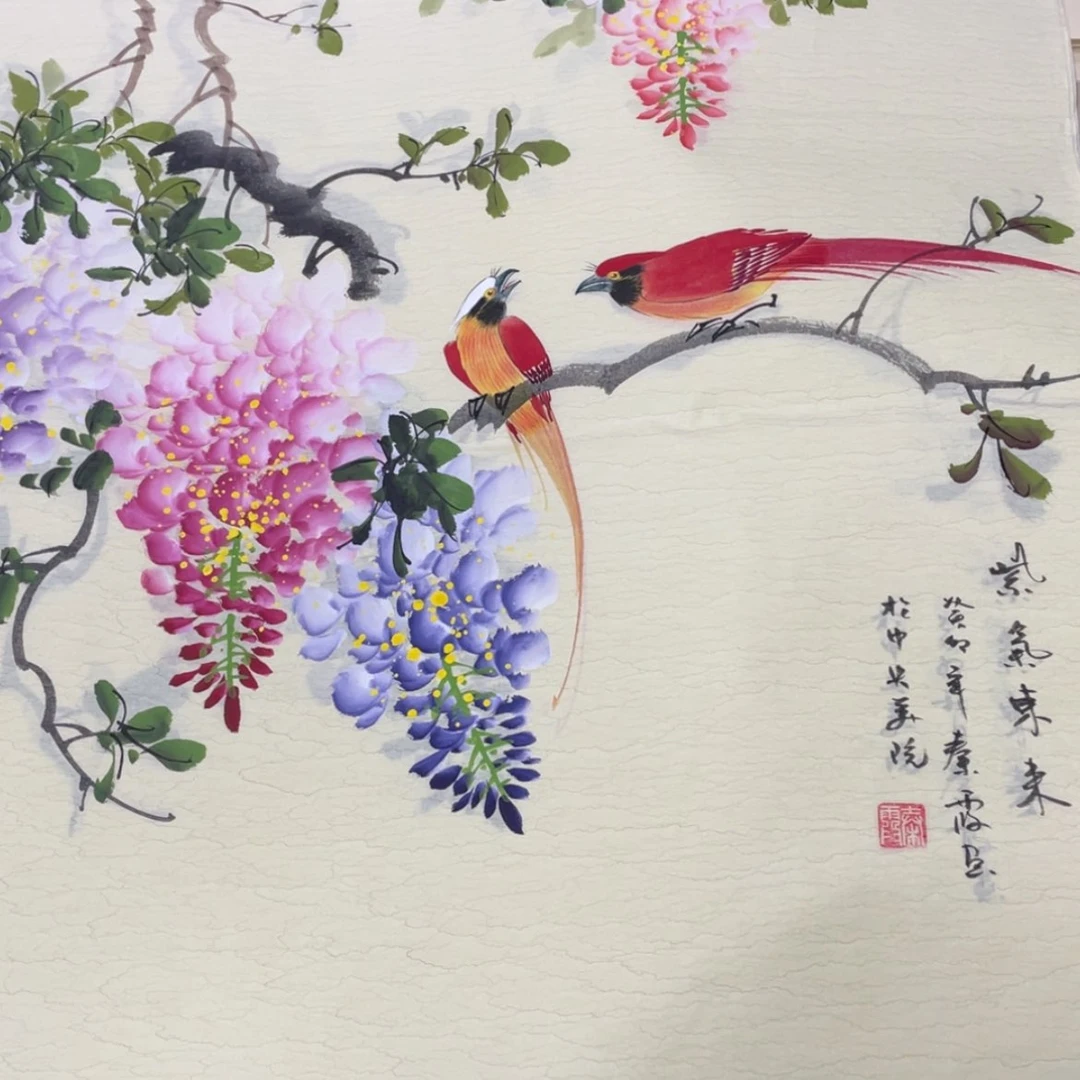 紫氣東来
癸卯年秦霞画
於中央美院
秦霞